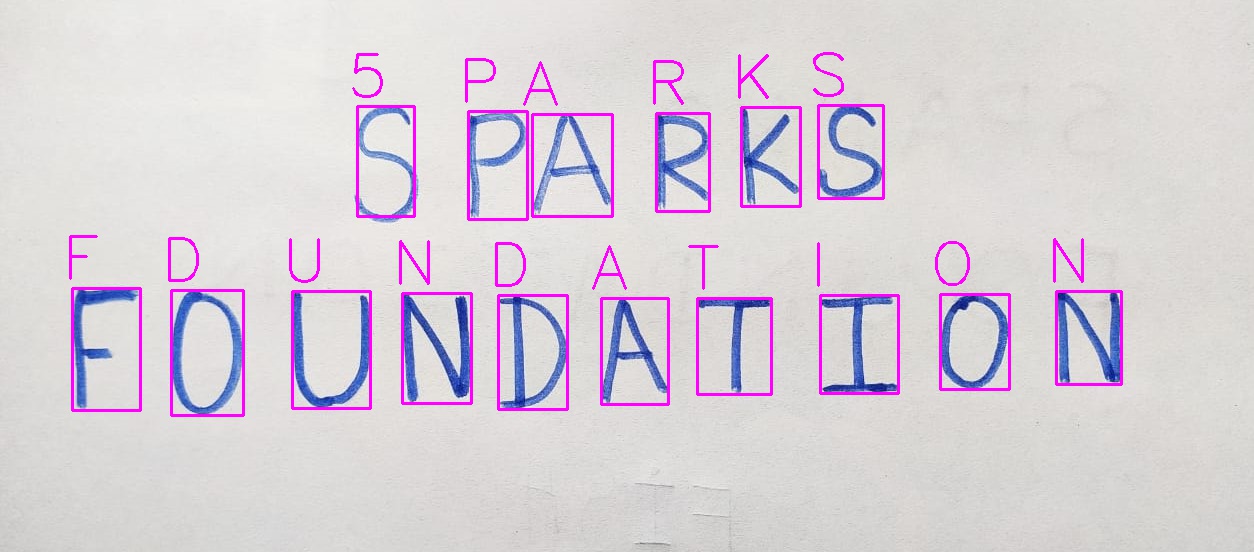 5 P A R K S
SPARKS
F D U N D A T I O N
FOUNDATION